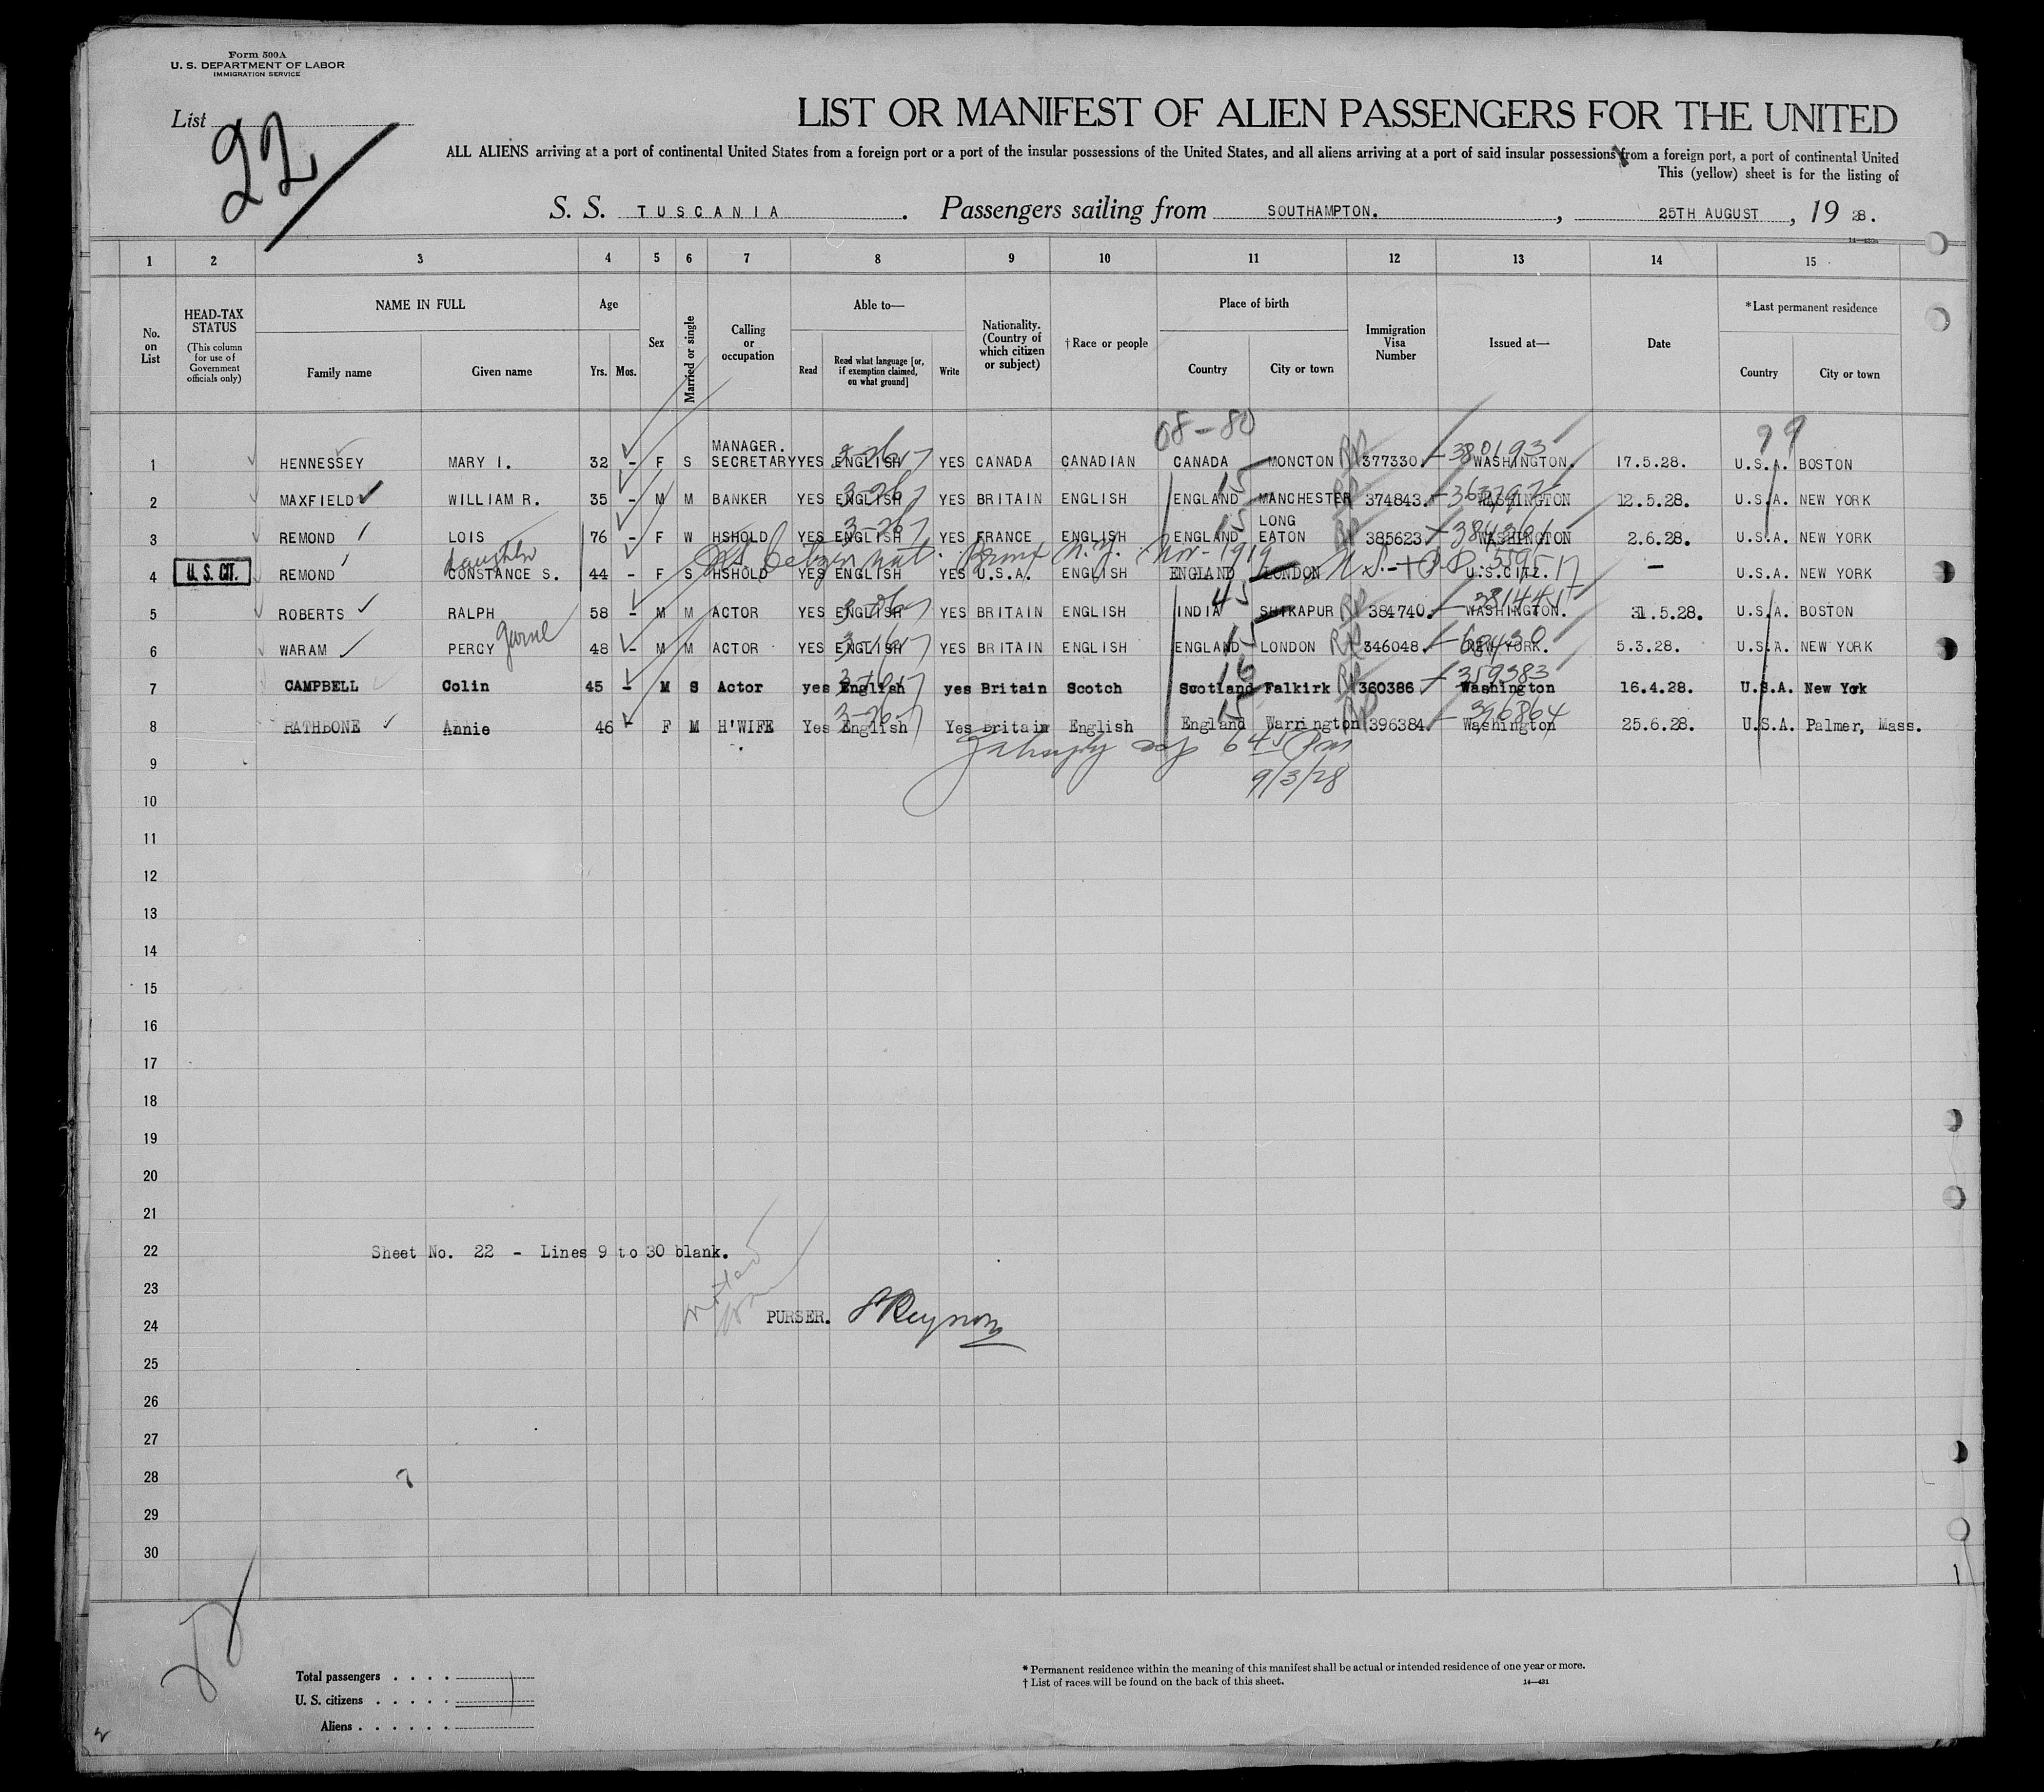 Form 500A
U. S. DEPARTMENT OF LABOR
IMMIGRATION SERVICE
List 22
LIST OR MANIFEST OF ALIEN PASSENGERS FOR THE UNITED
ALL ALIENS arriving at a port of continental United States from a foreign port or a port of the insular possessions of the United States, and all aliens arriving at a port of said insular possessions from a foreign port, a port of continental United
This (yellow) sheet is for the listing of
S. S. TUSCANIA. Passengers sailing from SOUTHAMPTON., 25TH AUGUST, 19 28.
14—430a
1 2 3 4 5 6 7 8 9 10 11 12 13 14 15
No. on List
HEAD-TAX STATUS
(This column for use of Government officials only)
NAME IN FULL
Family name Given name
Age
Yrs. Mos.
Sex
Married or single
Calling or occupation
Able to—
Read
Read what language [or, if exemption claimed, on what ground]
Write
Nationality. (Country of which citizen or subject)
†Race or people
Place of birth
Country City or town
Immigration Visa Number
Issued at—
Date
*Last permanent residence
Country City or town
08-80 99
1 HENNESSEY MARY I. 32 - F S MANAGER. SECRETARY YES ENGLISH YES CANADA CANADIAN CANADA MONCTON RP 377330. 380193 WASHINGTON. 17.5.28. U.S.A. BOSTON
2 MAXFIELD WILLIAM R. 35 - M M BANKER YES ENGLISH YES BRITAIN ENGLISH ENGLAND 15 MANCHESTER RP 374843. WASHINGTON 12.5.28. U.S.A. NEW YORK
3 REMOND LOIS 76 - F W HSHOLD YES ENGLISH YES FRANCE ENGLISH ENGLAND 15 LONG EATON RP 385623. WASHINGTON 2.6.28. U.S.A. NEW YORK
daughter U.S. Citizen nat. Bronx N.Y. Nov- 1919
4 U. S. CIT. REMOND CONSTANCE S. 44 - F S HSHOLD YES ENGLISH YES U.S.A. ENGLISH ENGLAND LONDON U.S.CITZ. — U.S.A. NEW YORK
5 ROBERTS RALPH 58 - M M ACTOR YES ENGLISH YES BRITAIN ENGLISH INDIA 45 SHIKAPUR RP 384740. WASHINGTON. 31.5.28. U.S.A. BOSTON
6 WARAM PERCY 48 - M M ACTOR YES ENGLISH YES BRITAIN ENGLISH ENGLAND 15 LONDON RP 346048. NEW YORK. 5.3.28. U.S.A. NEW YORK
7 CAMPBELL Colin 45 - M S Actor yes English yes Britain Scotch Scotland 16 Falkirk RP 360386 359383 Washington 16.4.28. U.S.A. New York
8 RATHBONE Annie 46 - F M H'WIFE Yes English Yes britain English England 15 Warrington RP 396384. 396864 Washington 25.6.28. U.S.A. Palmer, Mass.
9 6 45 Pm
9/3/28
10
11
12
13
14
15
16
17
18
19
20
21
22 Sheet No. 22 - Lines 9 to 30 blank.
23
24 PURSER.
25
26
27
28
29
30
Total passengers . . . .
U. S. citizens . . . . .
Aliens . . . . . .
* Permanent residence within the meaning of this manifest shall be actual or intended residence of one year or more.
† List of races will be found on the back of this sheet.
14—431